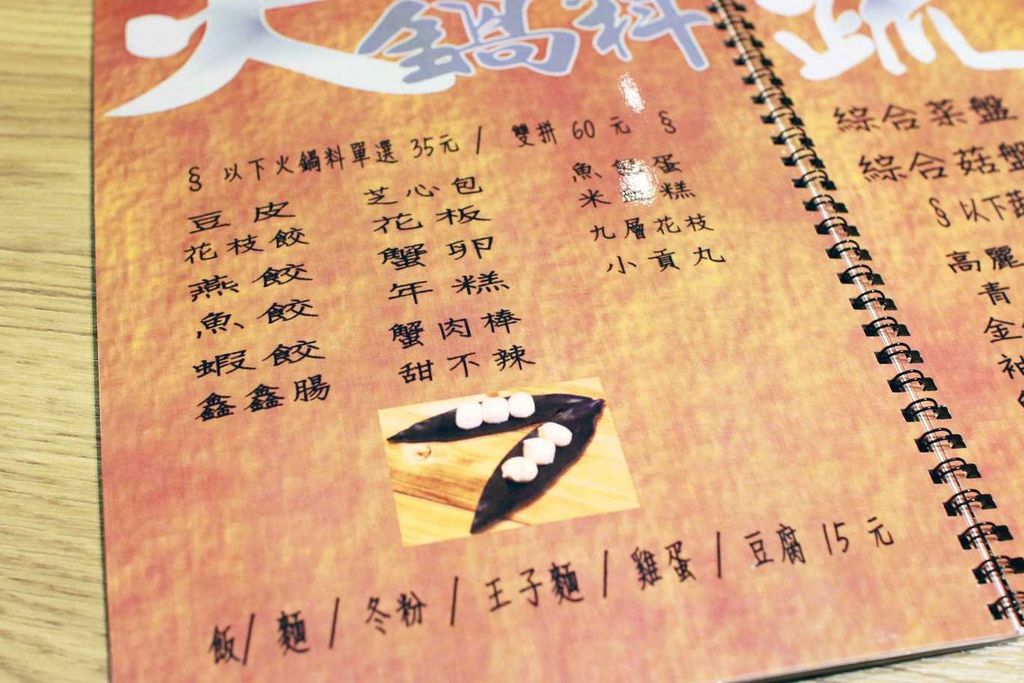 火鍋料
§ 以下火鍋料單選 35元 / 雙拼 60 元 §
豆皮
花枝餃
燕餃
魚餃
蝦餃
鑫鑫腸
芝心包
花板
蟹卵
年糕
蟹肉棒
甜不辣
魚蛋
米糕
九層花枝
小貢丸
飯 / 麵 / 冬粉 / 王子麵 / 雞蛋 / 豆腐 15 元
蔬
綜合菜盤
綜合菇盤
§ 以下
高麗
青
金